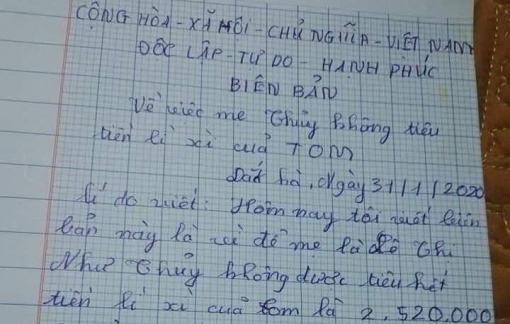 CỘNG HÒA - XÃ HỘI - CHỦ NGHĨA - VIỆT NAM
ĐỘC LẬP - TỰ DO - HẠNH PHÚC
BIÊN BẢN
Về việc mẹ Thủy không tiêu
tiền lì xì của TOM
Đăk hà, Ngày 31/1/2020
Lí do viết: Hôm nay tôi viết biên
bản này là vì để mẹ là Lê Thị
Như Thủy không được tiêu hết
tiền lì xì của tom là 2.520.000